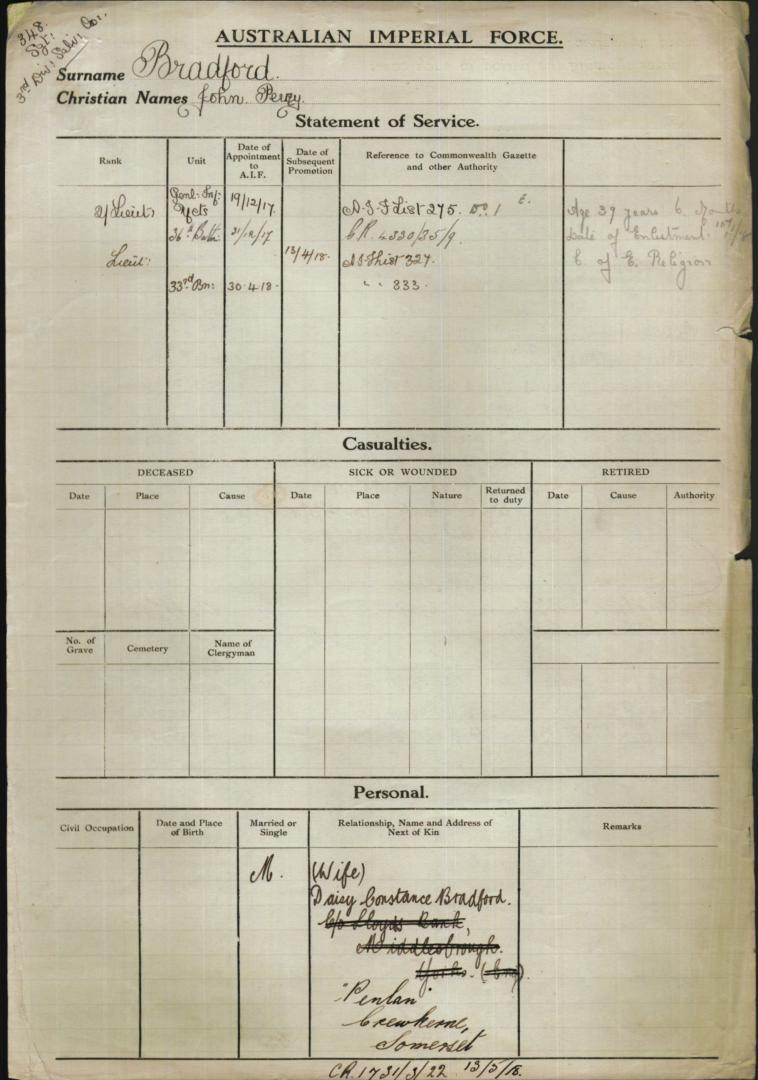 348.
Sgt:
3rd Div: Salv: Co:
AUSTRALIAN IMPERIAL FORCE.
Surname Bradford.
Christian Names John Percy.
Statement of Service.
Rank
Unit
Date of Appointment to A.I.F.
Date of Subsequent Promotion
Reference to Commonwealth Gazette and other Authority
2/Lieut: Genl: Inf: 19/12/17. A.I.F List 275. No. 1 E. Age 39 years 6 Months
36th Battn 21/12/17 C.R. 4330/35/9. Date of Enlistment.
Lieut: 13/4/18. A.I.F List 327. C of E Religion
33rd Bn: 30.4.18. " " 333.
Casualties.
DECEASED
SICK OR WOUNDED
RETIRED
Date Place Cause Date Place Nature Returned to duty Date Cause Authority
No. of Grave Cemetery Name of Clergyman
Personal.
Civil Occupation
Date and Place of Birth
Married or Single
Relationship, Name and Address of Next of Kin
Remarks
M. (Wife)
Daisy Constance Bradford.
C/o Lloyds Bank,
Middlesbrough.
Yorks. (Eng).
"Penlan"
Crewkerne,
Somerset
CR.1731/3/22 13/5/18.